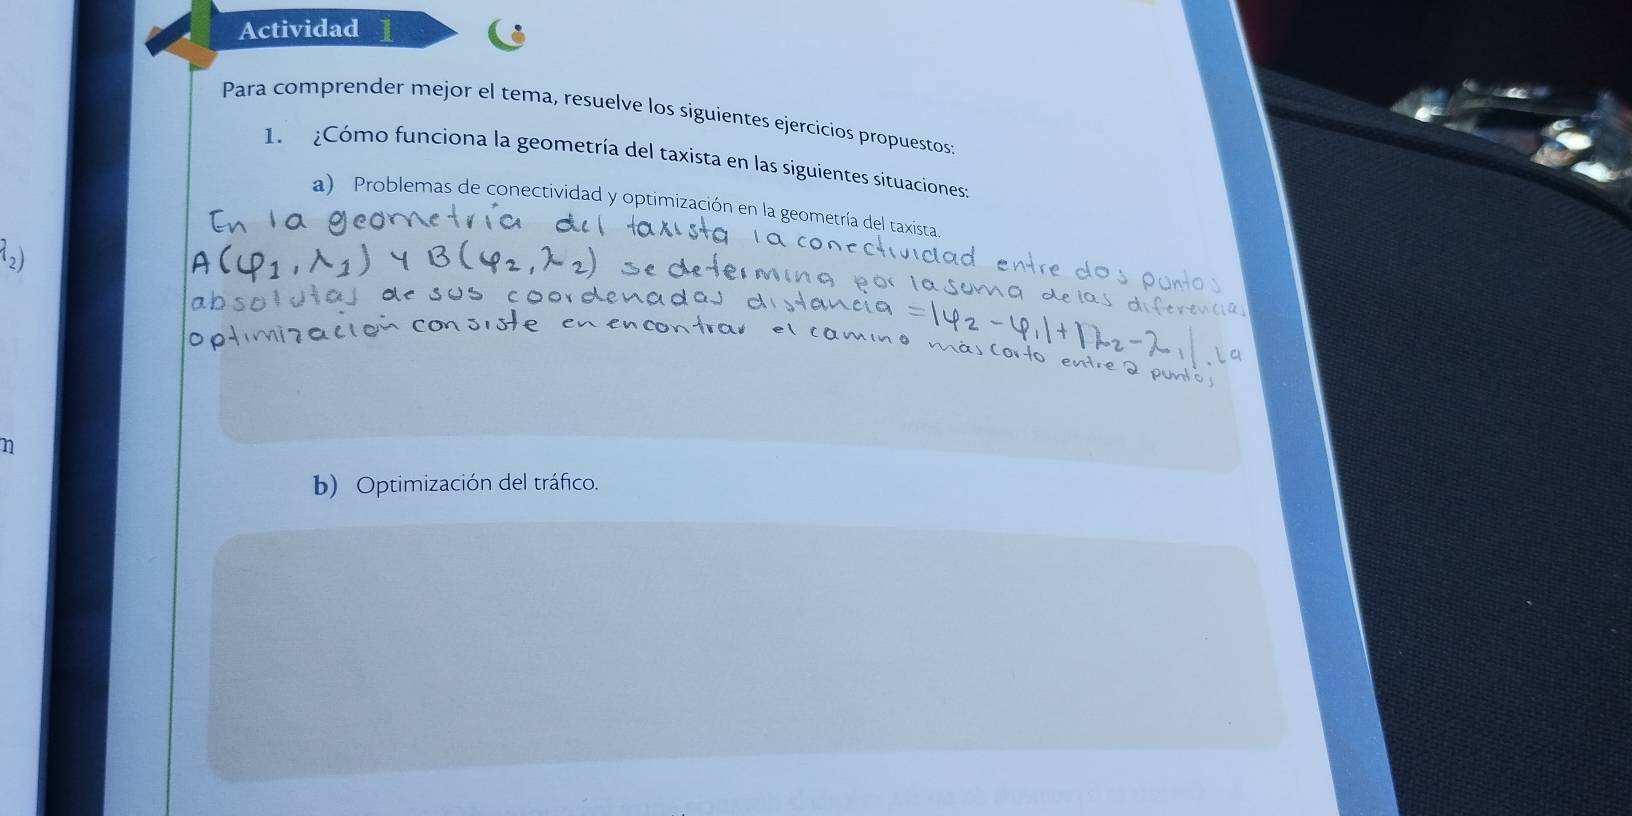 Actividad 1
Para comprender mejor el tema, resuelve los siguientes ejercicios propuestos:
1. ¿Cómo funciona la geometría del taxista en las siguientes situaciones:
a) Problemas de conectividad y optimización en la geometría del taxista.
En la geometría del taxista la conectividad entre dos puntos
A(φ1, λ1) y B(φ2, λ2) se determina por la suma de las diferencias
absolutas de sus coordenadas distancia = |φ2 - φ1| + |λ2 - λ1|. La
optimización consiste en encontrar el camino más corto entre 2 puntos
b) Optimización del tráfico.
λ2)
n